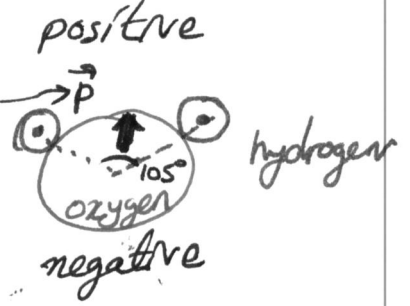 positive
p
105°
hydrogen
oxygen
negative